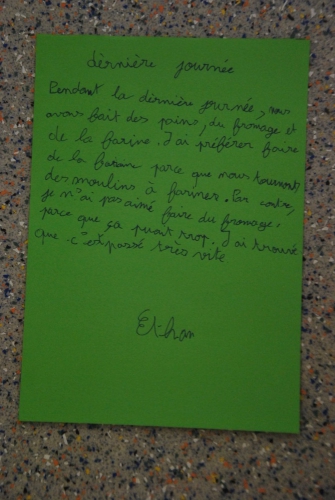 dernière journée
Pendant la dernière journée, nous
avons fait des pains, du fromage et
de la farine. J'ai préférer faire
de la farine parce que nous tournons
des moulins à farines. Par contre,
je n'ai pas aimé faire du fromage,
parce que ça puait trop. J'ai trouvé
que c'est passé très vite
Ethan